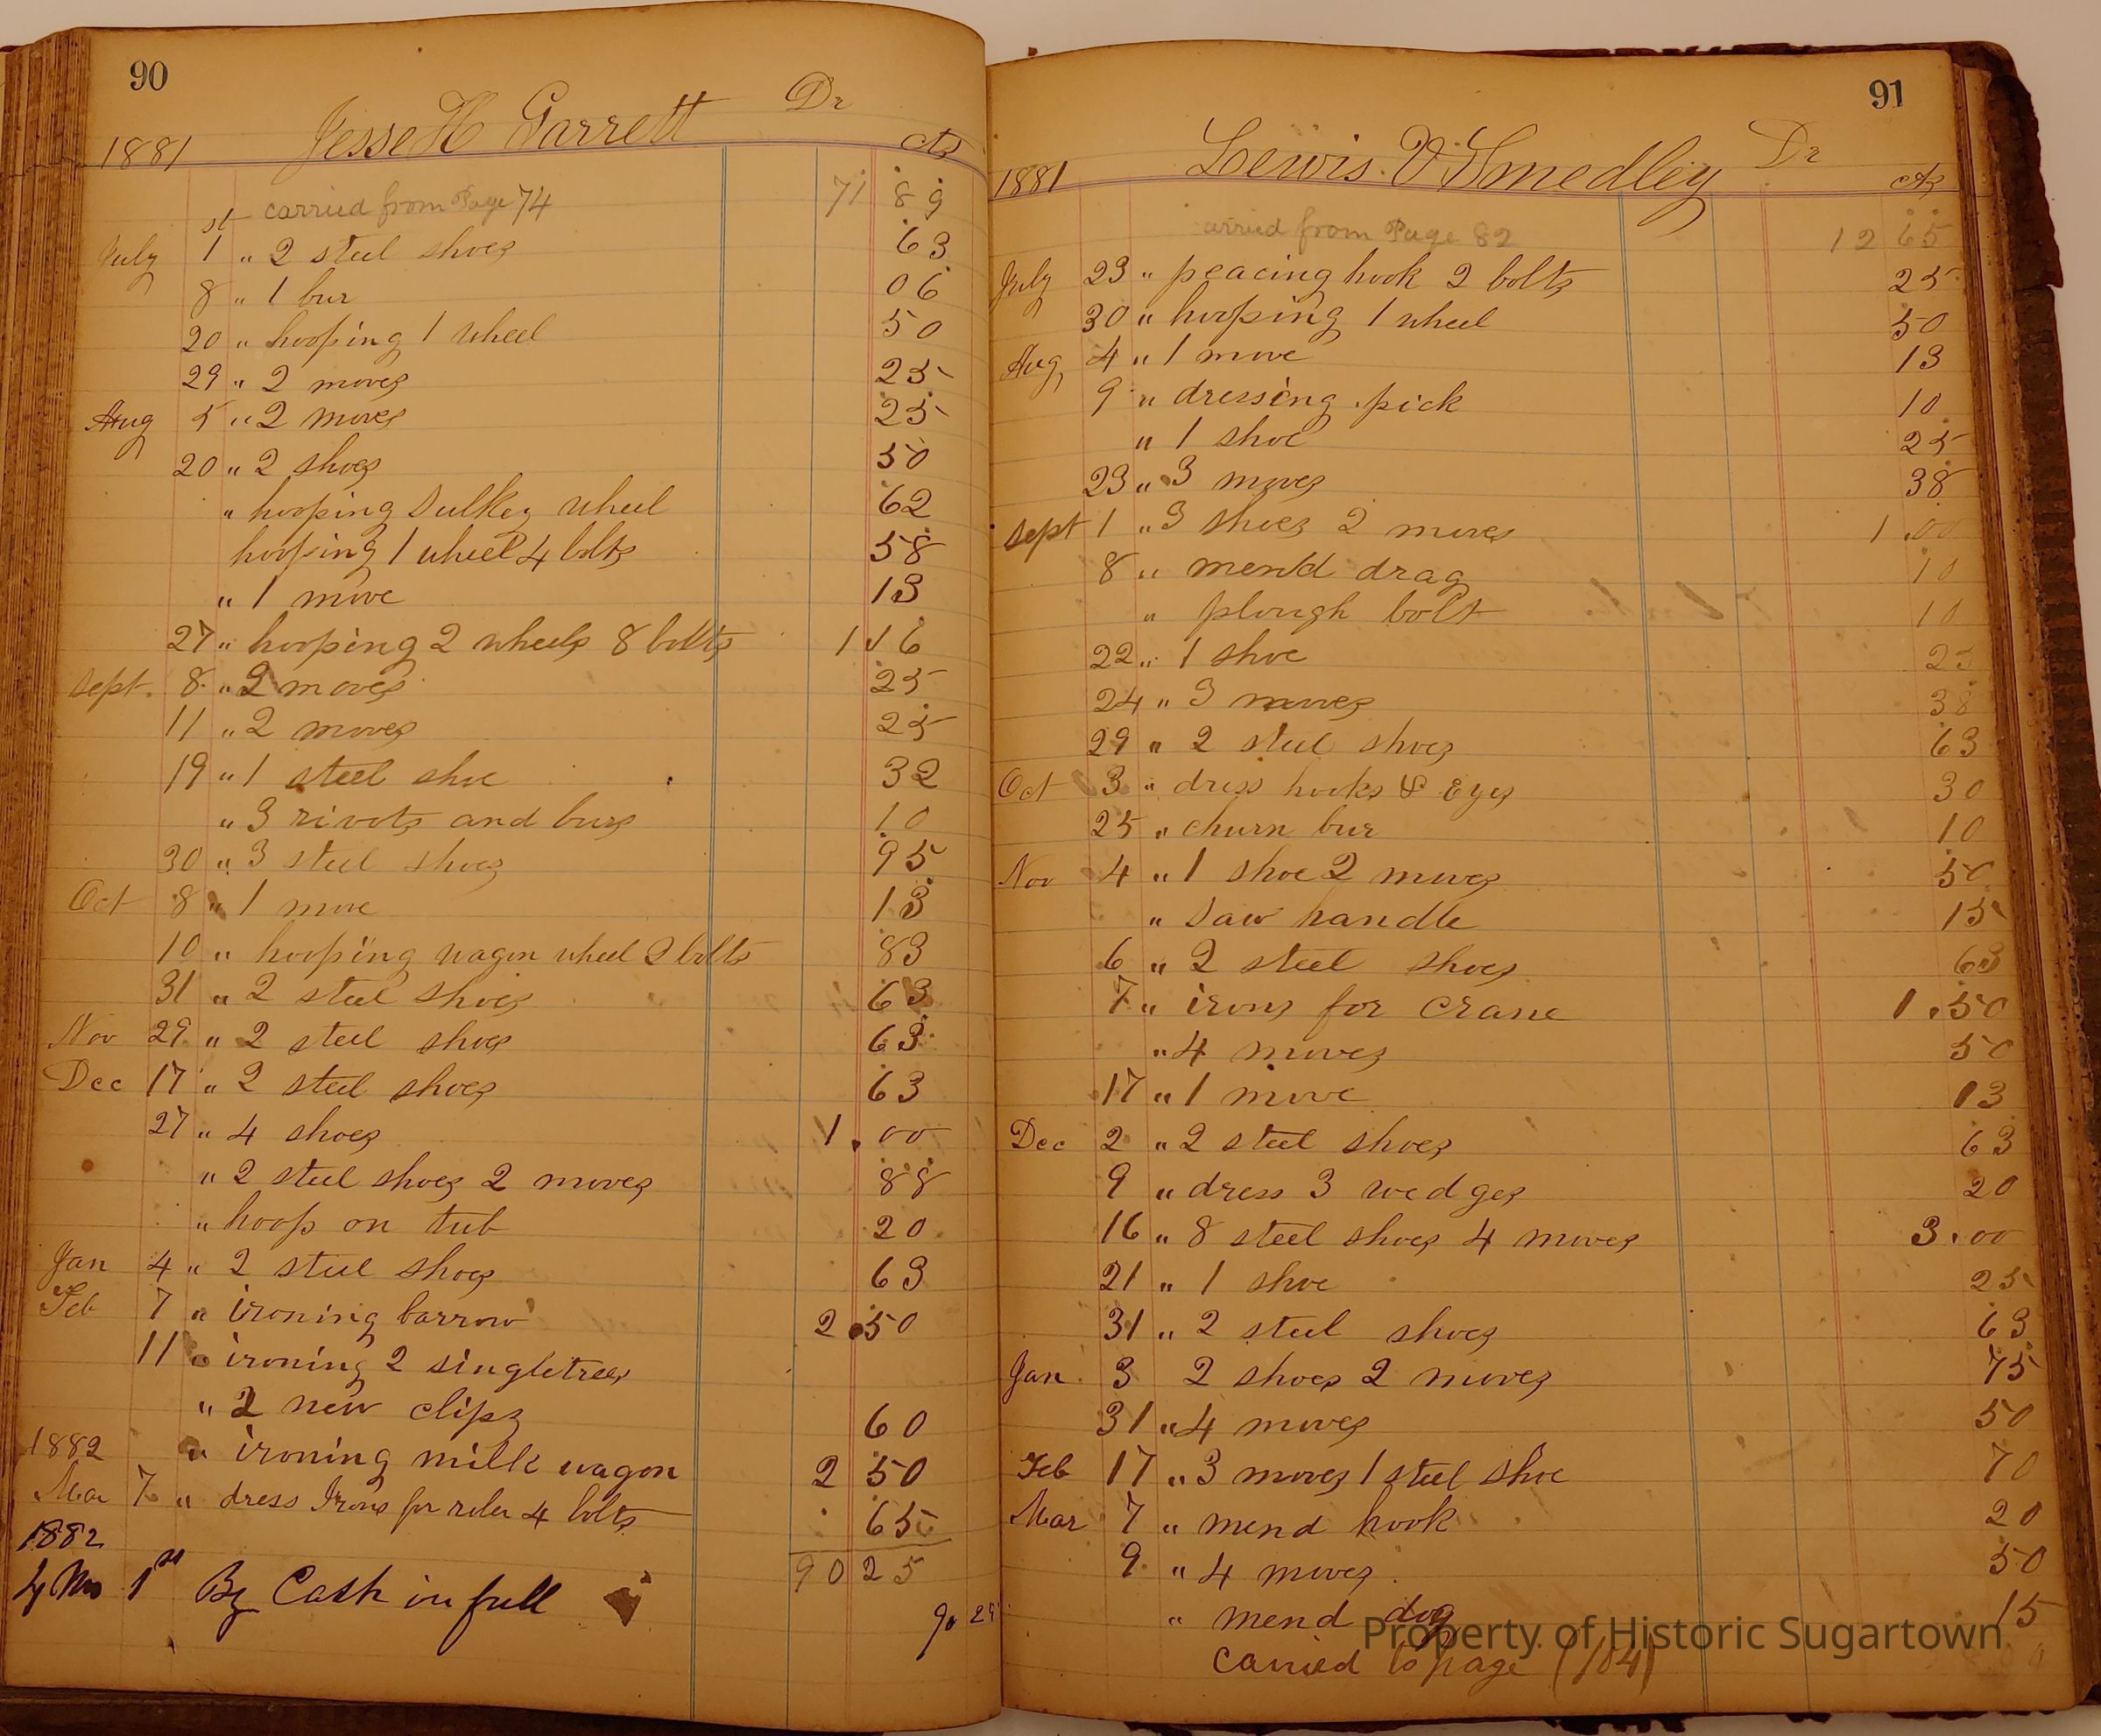 90
Jesse H Garrett Dr
1881 cts
carried from Page 74 71 89
July 1st " 2 steel shoes 63
8 " 1 bur 06
20 " hooping 1 wheel 50
29 " 2 moves 25
Aug 5 " 2 moves 25
20 " 2 shoes 50
" hooping Sulkey wheel 62
hooping 1 wheel 4 bolts 58
" 1 move 13
27 " hooping 2 wheels 8 bolts 1 16
Sept. 8 " 2 moves 25
11 " 2 moves 25
19 " 1 steel shoe 32
" 3 rivots and burs 10
30 " 3 steel shoes 95
Oct 8 " 1 move 13
10 " hooping wagon wheel 2 bolts 83
31 " 2 steel shoes 63
Nov 29 " 2 steel shoes 63
Dec 17 " 2 steel shoes 63
27 " 4 shoes 1.00
" 2 steel shoes 2 moves 88
" hoop on tub 20
Jan 4 " 2 steel shoes 63
Feb 7 " ironing barrow 2.50
11 " ironing 2 singletrees
" 2 new clips 60
1882 " ironing milk wagon 2 50
Mar 7 " dress Irons for roler 4 bolts 65
1882 90 25
4 Mo 1st By Cash in full 90 25
91
Lewis V Smedley Dr
1881 cts
carried from Page 82 12 65
July 23 " peacing hook 2 bolts 25
30 " hooping 1 wheel 50
Aug, 4 " 1 move 13
9 " dressing pick 10
" 1 shoe 25
23 " 3 moves 38
Sept 1 " 3 shoes 2 moves 1.00
8 " mend drag 10
" plough bolt 10
22 " 1 shoe 25
24 " 3 moves 38
29 " 2 steel shoes 63
Oct 3 " dress hooks & Eyes 30
25 " churn bur 10
Nov 4 " 1 shoe 2 moves 50
" Saw handle 15
6 " 2 steel shoes 63
7 " irons for crane 1.50
" 4 moves 50
17 " 1 move 13
Dec 2 " 2 steel shoes 63
9 " dress 3 wedges 20
16 " 8 steel shoes 4 moves 3.00
21 " 1 shoe 25
31 " 2 steel shoes 63
Jan 3 2 shoes 2 moves 75
31 " 4 moves 50
Feb 17 " 3 moves 1 steel shoe 70
Mar 7 " mend hook 20
9 " 4 moves 50
" mend dog 15
Property of Historic Sugartown
Carried to page (104)